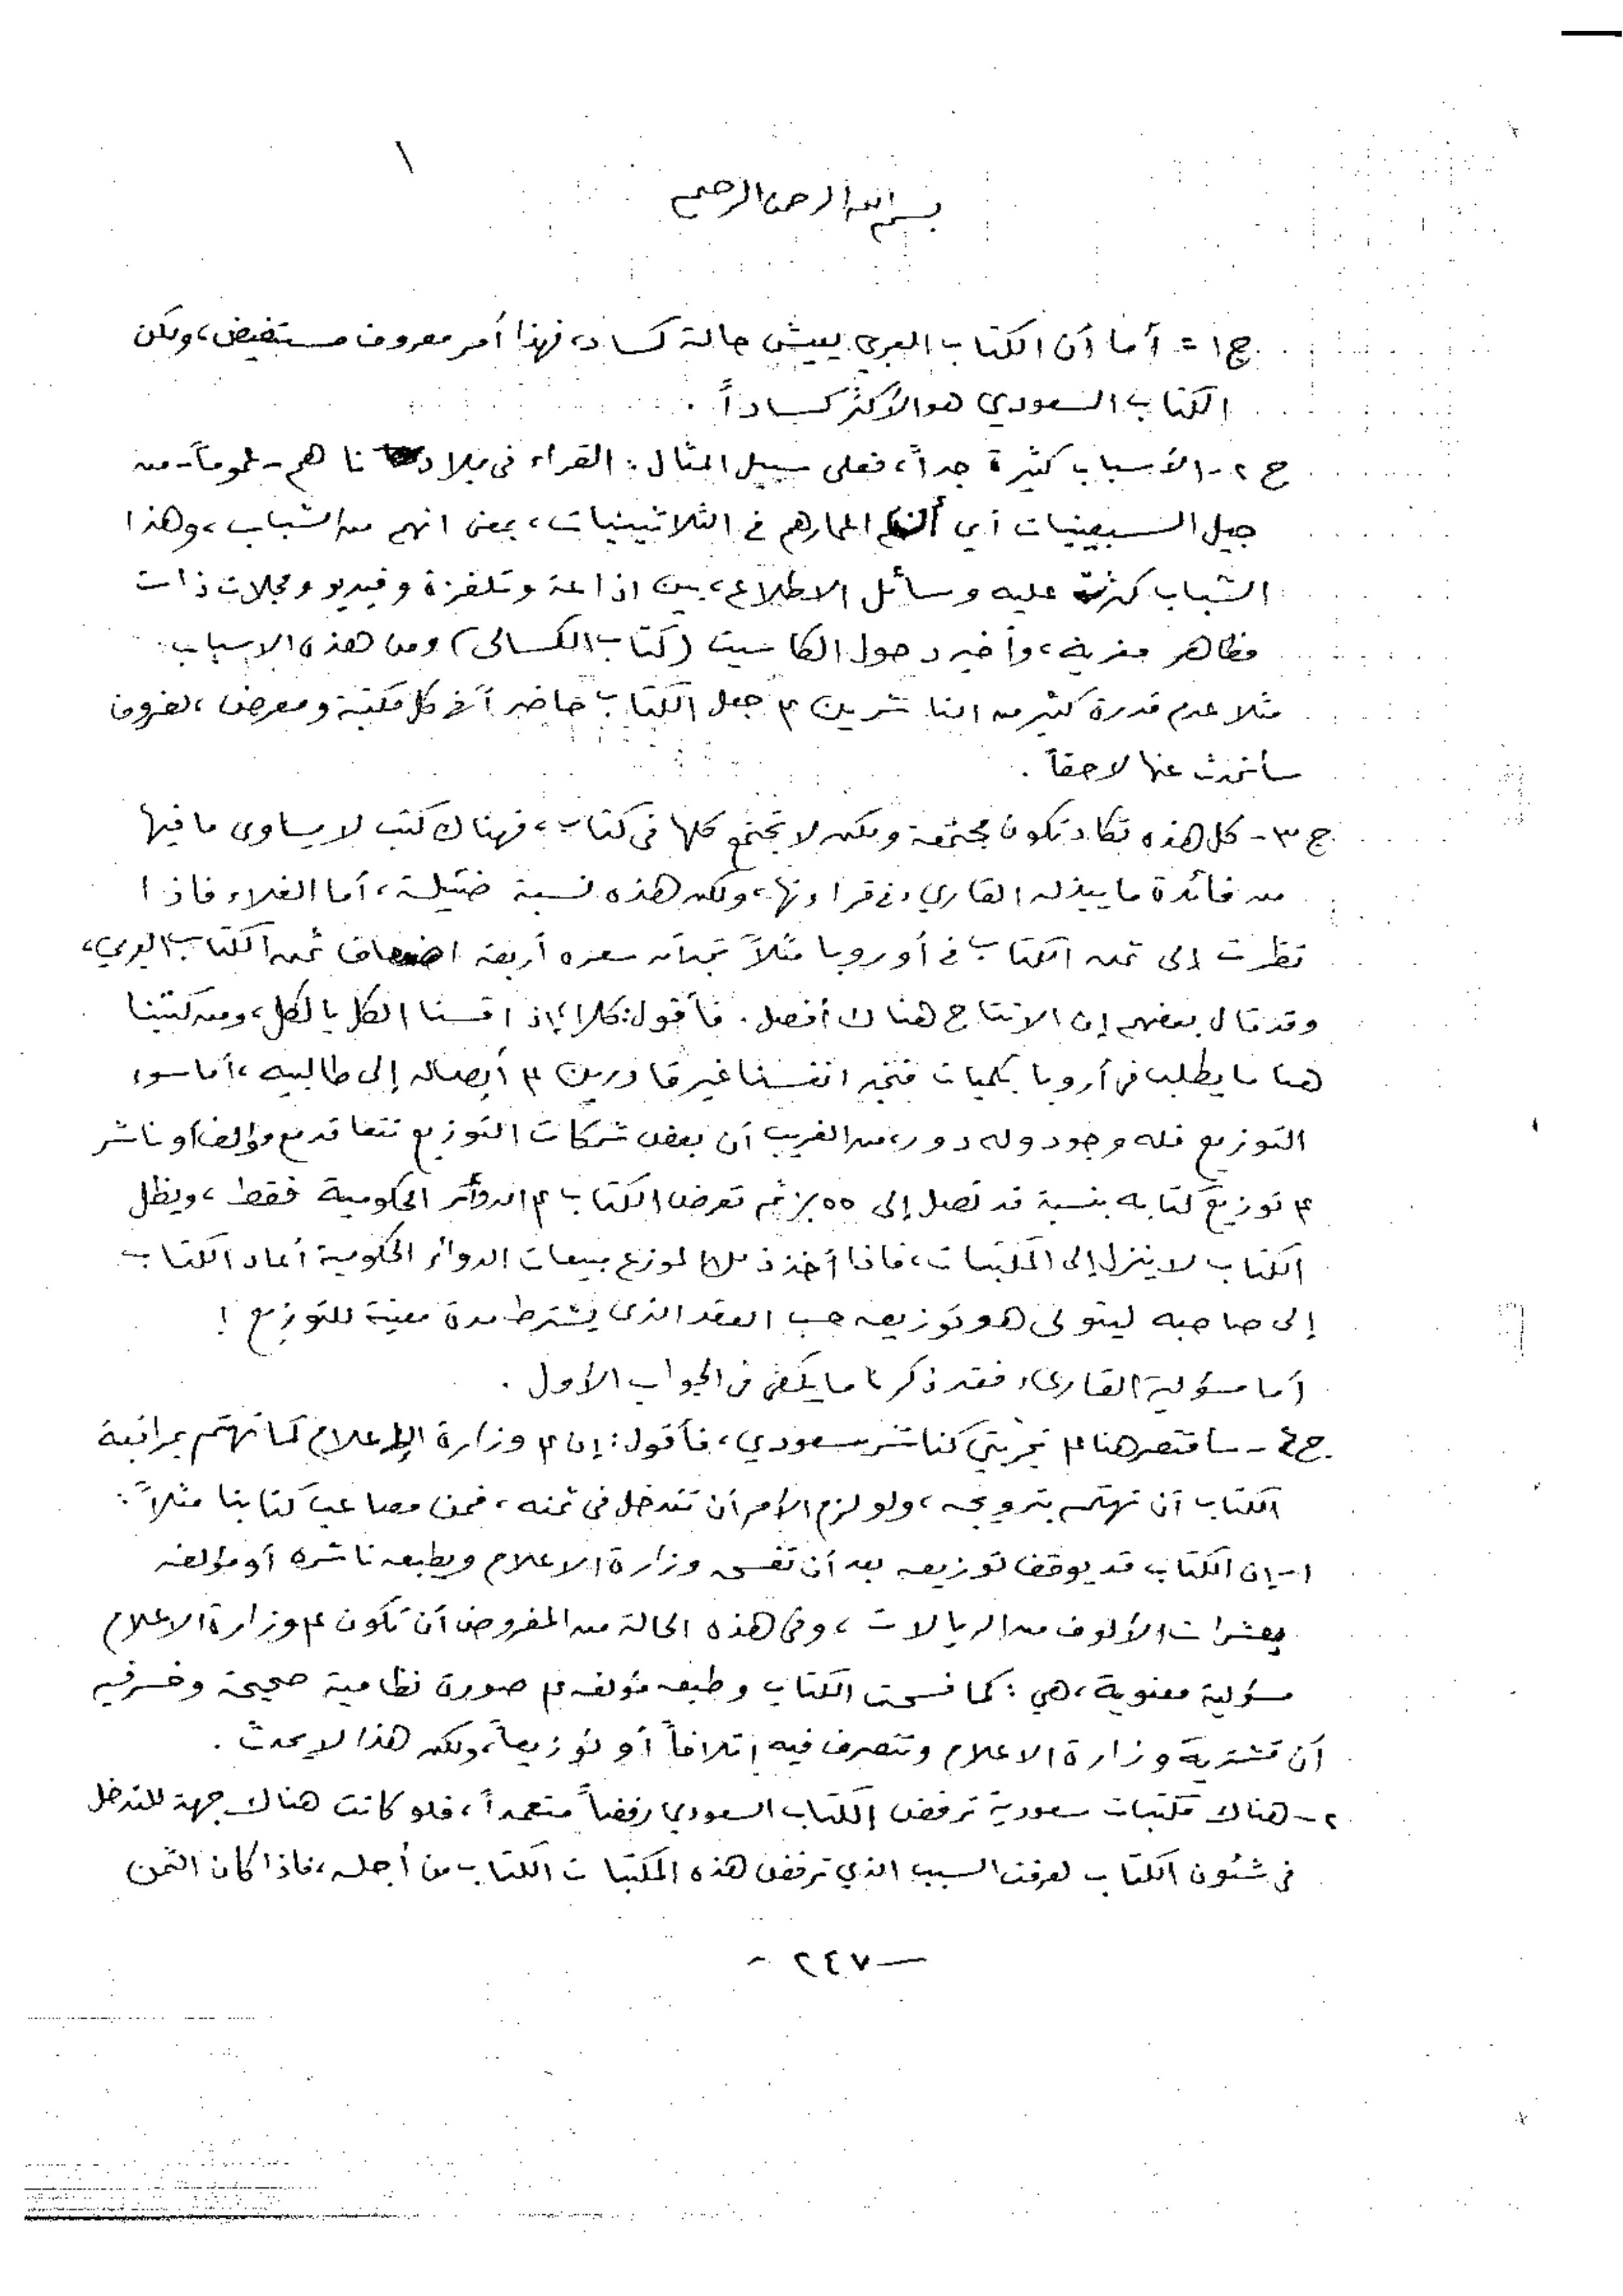 ١
بسم الله الرحمن الرحيم
ج١ = أما أن الكتاب العربي يعيش حالة كساد، فهذا أمر معروف مستفيض، ولكن
الكتاب السعودي هو الأكثر كساداً .
ج٢ - الأسباب كثيرة جداً، فعلى سبيل المثال : القراء في بلادنا هم - عموماً - من
جيل السبعينيات أي أعمارهم في الثلاثينيات، بمعنى انهم من الشباب، وهذا
الشباب كثرت عليه وسائل الاطلاع، بين اذاعة وتلفزة وفيديو ومجلات ذات
مظاهر مغرية، وأخير دخول الكاسيت (كتاب الكسالى) ومن هذه الاسباب
مثلا عدم قدرة كثير من الناشرين على جعل الكتاب حاضراً في كل مكتبة ومعرض، لظروف
سأتحدث عنها لاحقاً .
ج٣ - كل هذه تكاد تكون مجتمعة ولكن لا تجتمع كلها في كتاب، فهناك كتب لا يساوى ما فيها
من فائدة ما يبذله القاريء في قراءتها، ولكن هذه نسبة ضئيلة، أما الغلاء فاذا
نظرت إلى ثمن الكتاب في أوروبا مثلاً تجد أن سعره أربعة اضعاف ثمن الكتاب العربي،
وقد قال بعضهم إن الانتاج هناك أفضل . فأقول : كلا، إذا قسنا الكل بالكل، ومن كتبنا
هنا ما يطلب في أروبا بكميات فنجد انفسنا غير قادرين على أيصاله إلى طالبيه، أما سوء
التوزيع فله وجود وله دور، من الغريب أن بعض شركات التوزيع تتعاقد مع مؤلف أو ناشر
على توزيع كتابه بنسبة قد تصل إلى ٥٥٪ ثم تعرض الكتاب على الدوائر الحكومية فقط، ويظل
الكتاب لا ينزل إلى المكتبات، فاذا أخذ ذلك الموزع مبيعات الدوائر الحكومية أعاد الكتاب
إلى صاحبه ليتولى هو توزيعه حسب العقد الذى يشترط مدة معينة للتوزيع !
أما مسؤلية القارىء فقد ذكرنا ما يكفي في الجواب الأول .
ج٤ - سأقتصر هنا على تجربتي كناشر سعودي، فأقول : إن على وزارة الإعلام كما تهتم بمراقبة
الكتاب أن تهتم بترويجه، ولو لزم الأمر أن تتدخل في ثمنه، فمن مصاعب كتابنا مثلاً :
١ - إن الكتاب قد يوقف توزيعه بعد أن تفسحه وزارة الاعلام ويطبعه ناشره أو مؤلفه
بعشرات الألوف من الريالات، وفي هذه الحالة من المفروض أن تكون على وزارة الاعلام
مسؤلية معنوية، هي : كما فسحت الكتاب وطبعه مؤلفه على صورة نظامية صحيحة وخسر فيه
أن تشتريه وزارة الاعلام وتتصرف فيه إتلافاً أو توزيعاً، ولكن هذا لا يحدث .
٢ - هناك مكتبات سعودية ترفض الكتاب السعودي رفضاً متعمداً، فلو كانت هناك جهة للتدخل
في شئون الكتاب لعرفت السبب الذي ترفض هذه المكتبات الكتاب من أجله، فاذا كان الثمن
— ٢٤٧ -